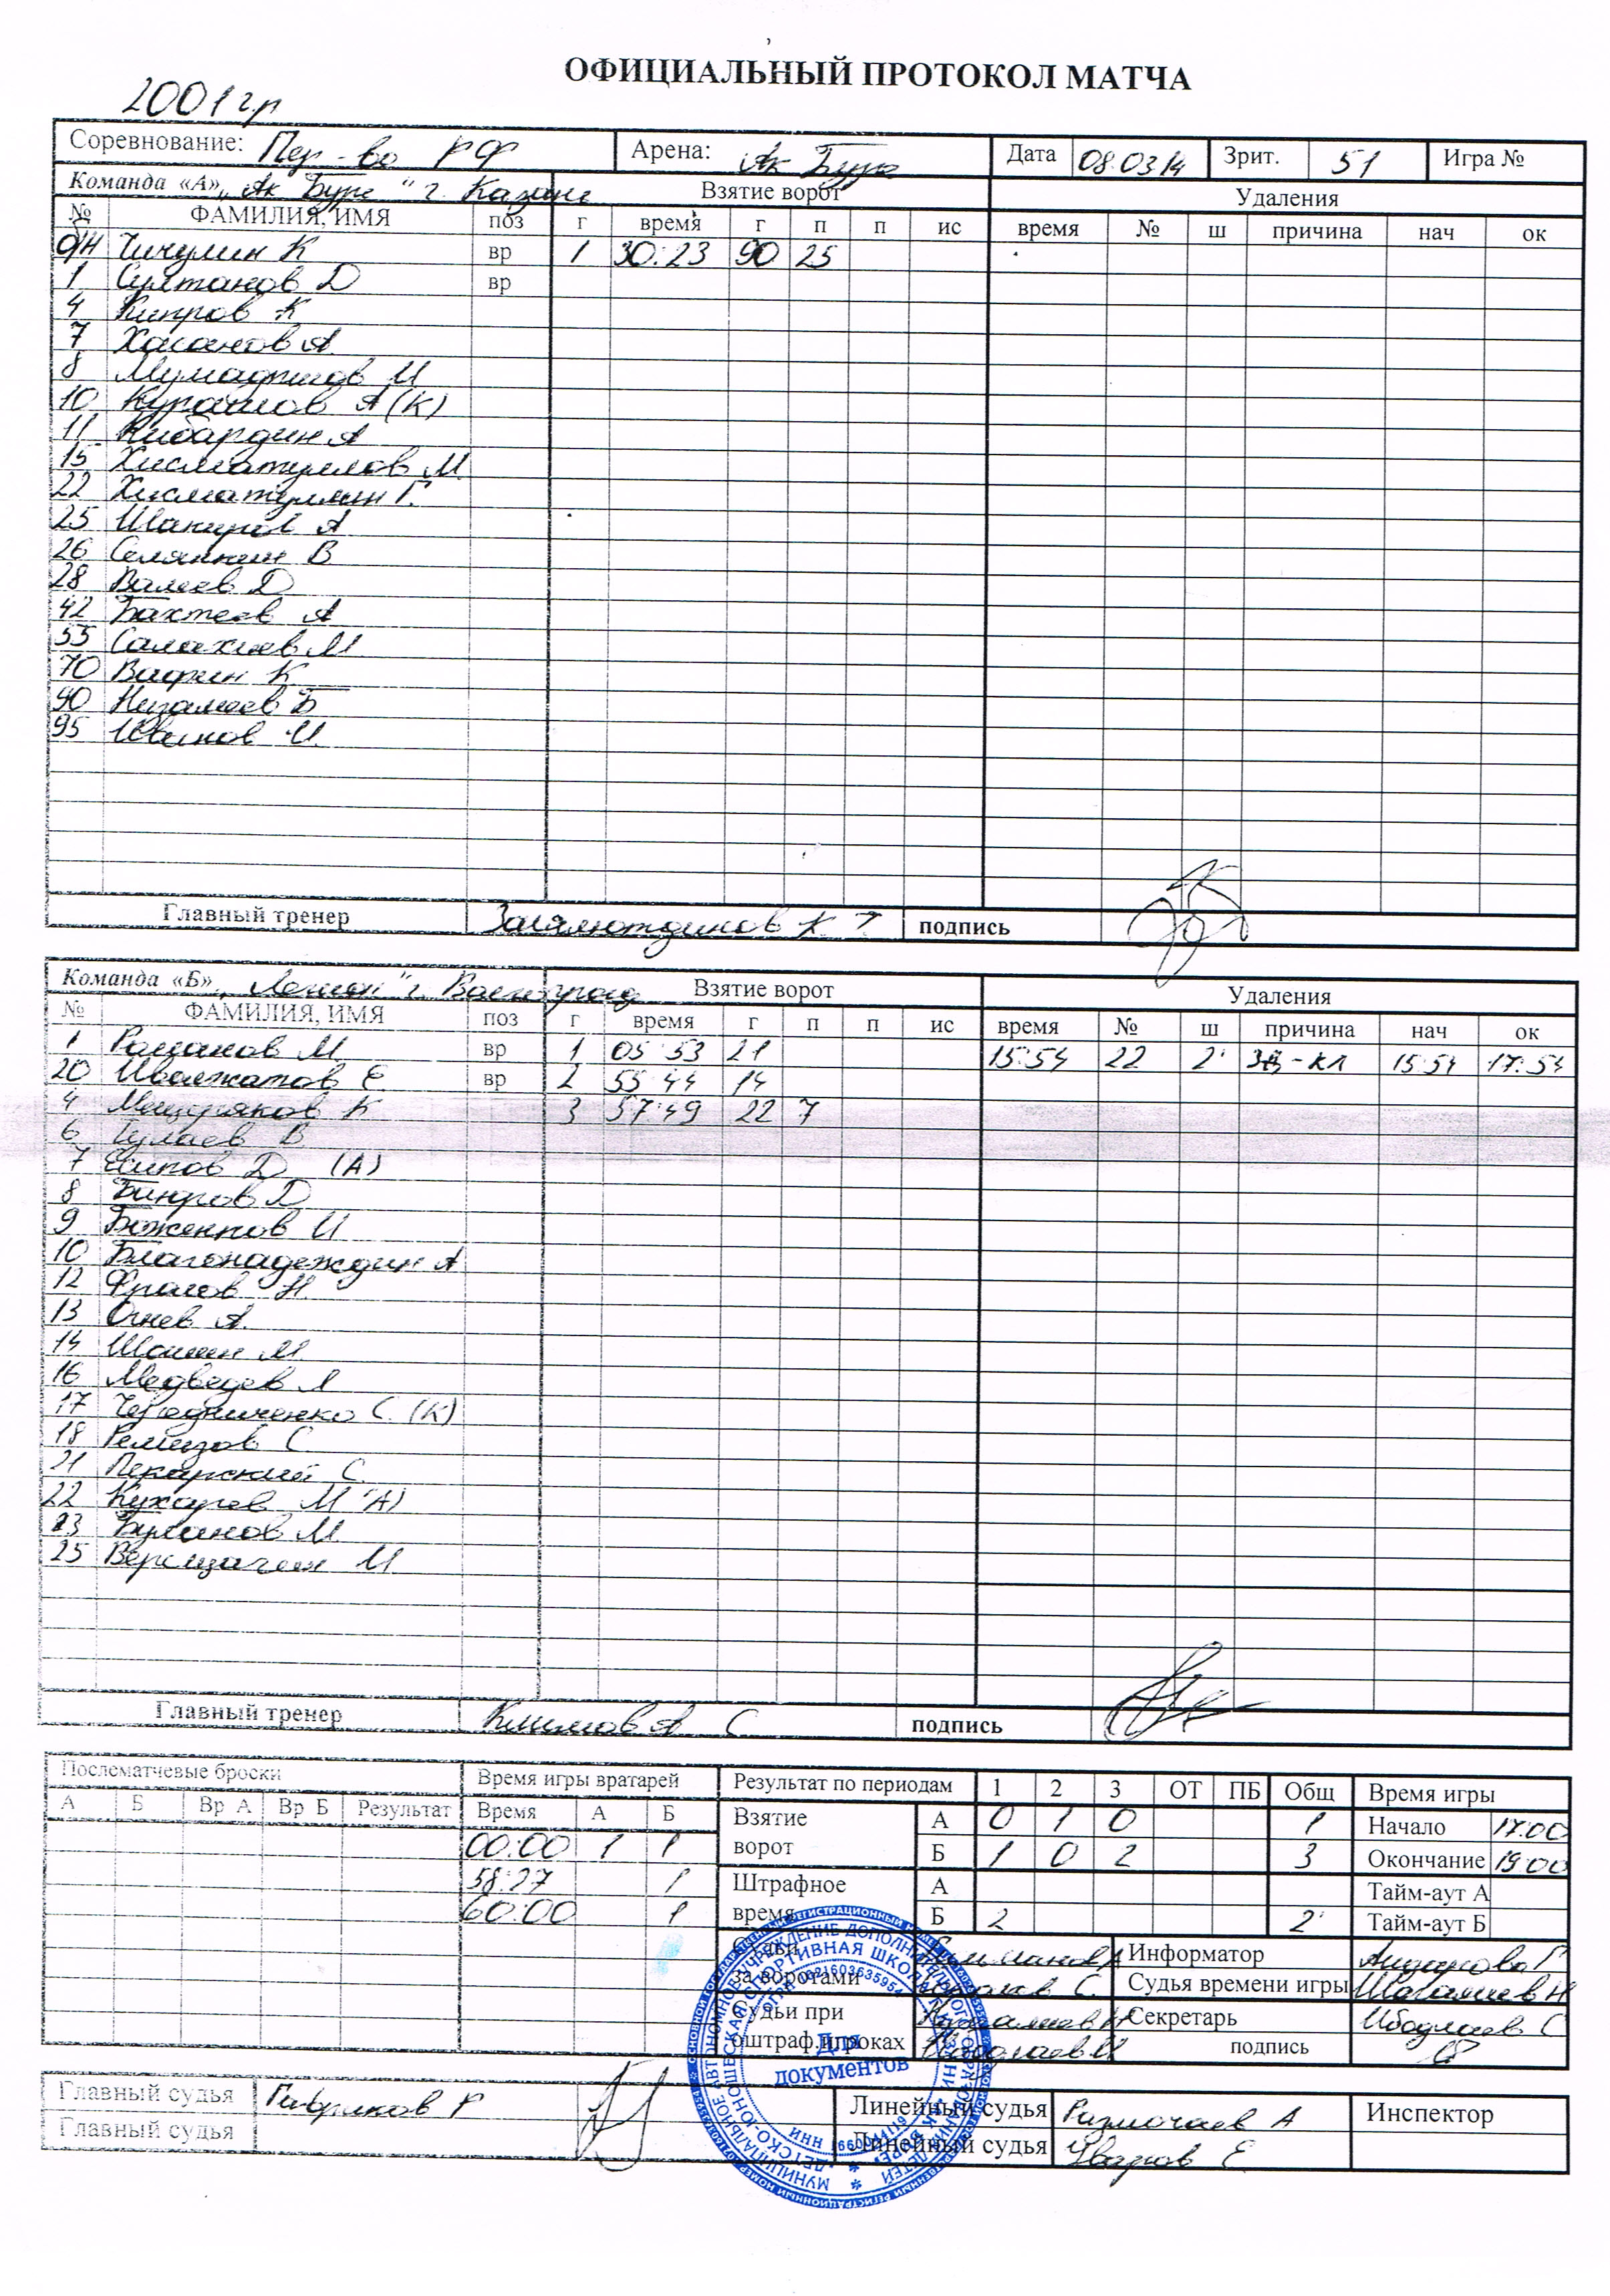 ОФИЦИАЛЬНЫЙ ПРОТОКОЛ МАТЧА
2001 г.р
Соревнование: Пер-во РФ Арена: Ак Буре Дата 08.03.14 Зрит. 51 Игра №
Команда «А» „Ак Буре" г. Казань Взятие ворот Удаления
№ ФАМИЛИЯ, ИМЯ поз г время г п п ис время № ш причина нач ок
б/н Чичулин К вр 1 30:23 90 25
1 Султанов Д вр
4 Кипров К
7 Хасанов А.
8 И
10 А (К)
11 Кибардин А
15 Хисматуллов М.
22 Хисматуллин Г.
25 Шакиров А
26 Селянкин В
28 Валеев Д
42 Бахтеев А
55 Салахиев М.
70 Вафин К
90 Нигамеев Б
95 Иванов И.
Главный тренер К Г подпись
Команда «Б» г. Взятие ворот Удаления
№ ФАМИЛИЯ, ИМЯ поз г время г п п ис время № ш причина нач ок
1 Романов М. вр 1 05:53 21 15:54 22 2' ЗД-КЛ 15:54 17:54
20 Е. вр 2 55:44 14
4 Мещеряков К 3 57:49 22 7
6 В
7 Осипов Д (А)
8 Д
9 Баженков И
10 Благонадеждин А
12 Фролов Н.
13 Огнев А.
14 Шашин М
16 Медведев А
17 Чередниченко С. (К)
18 Ремизов С.
21 Пекарский С.
22 Кухарев М (А)
23 Буланов М.
25 Верещагин И.
Главный тренер Климов А С подпись
Послематчевые броски Время игры вратарей Результат по периодам 1 2 3 ОТ ПБ Общ Время игры
А Б Вр А Вр Б Результат Время А Б Взятие ворот А 0 1 0 1 Начало 17.00
00:00 1 1 Б 1 0 2 3 Окончание 19.00
58:27 1 Штрафное время А Тайм-аут А
60:00 1 Б 2 2' Тайм-аут Б
Судьи за воротами Информатор
С. Судья времени игры Н
Судьи при оштраф.игроках Секретарь С
подпись
Для документов
Главный судья Гавриков Р Линейный судья Размочаев А Инспектор
Главный судья Линейный судья Уваров Е